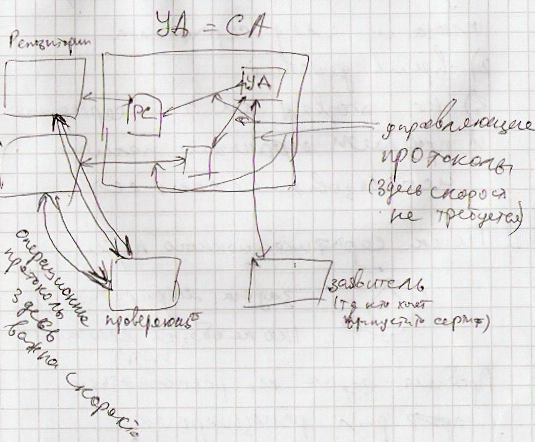 УА = СА
Репозитории
УА
РС
управляющие
протоколы
(здесь скорость
не требуется)
операционные
протоколы
здесь
важна скорость
проверяющий
заявитель
(тд кто хочет
выпустить серт)